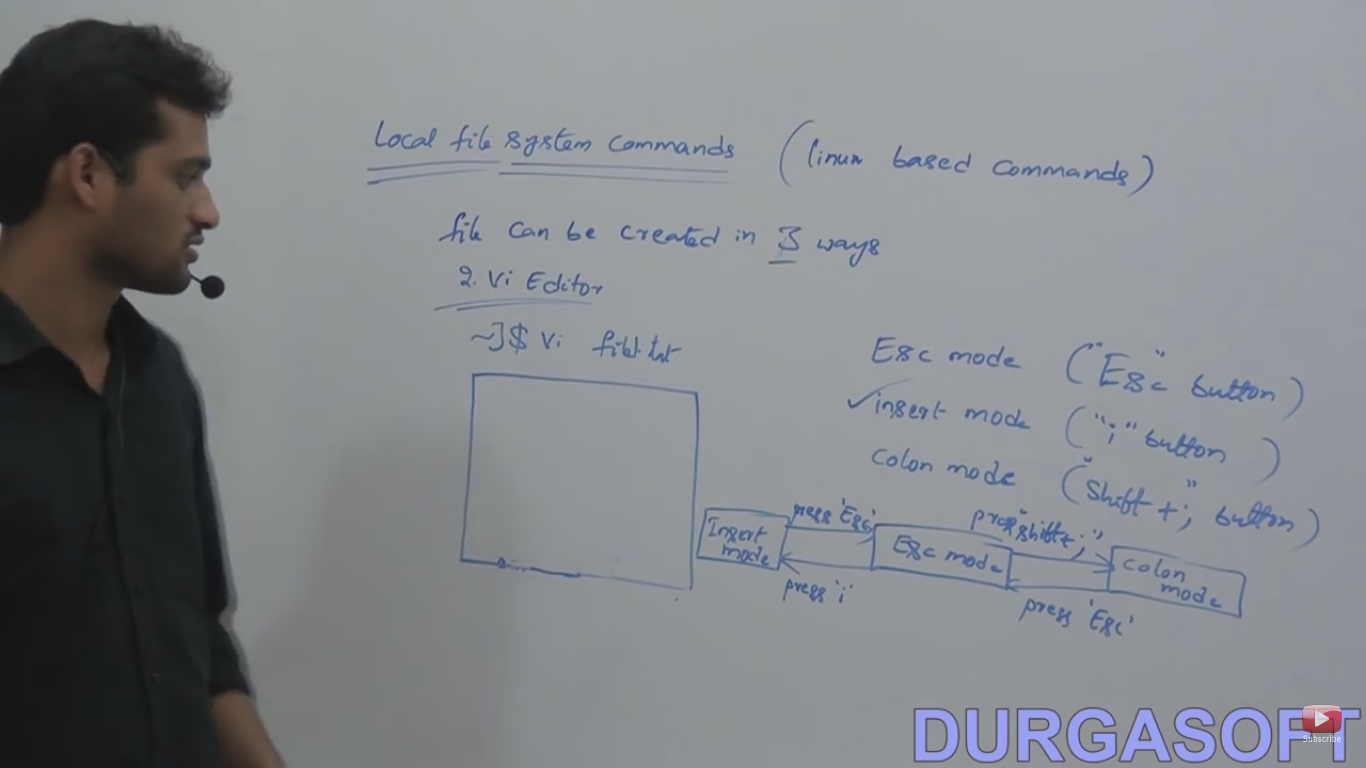 Local file system commands (linux based commands)
file can be created in 3 ways
2. Vi Editor
~]$ Vi file1.txt
Esc mode ("Esc" button)
✓insert mode ("i" button)
Colon mode ("Shift+;" button)
Insert mode
press 'Esc'
press 'i'
Esc mode
press "shift+;"
press 'Esc'
Colon mode
DURGASOFT
Subscribe